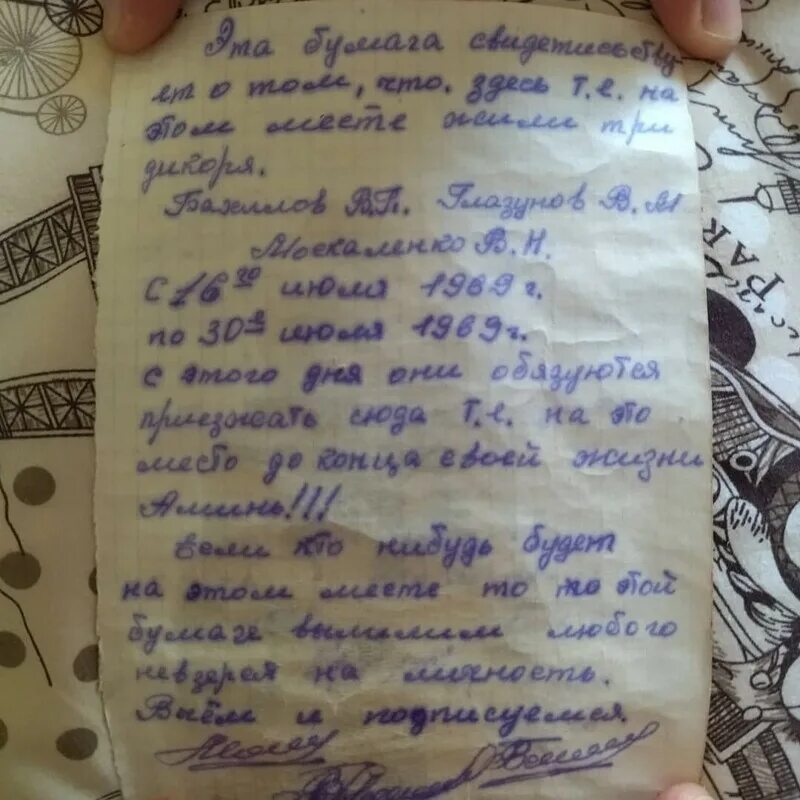 Эта бумага свидетисьству
ет о том, что. здесь т.е. на
этом месте жили три
дикоря.
Бахиллов В.П. Глазунов В. М
Москаленко В. Н.
С 16го июля 1969 г.
по 30е июля 1969 г.
с этого дня они обязуются
приезжать сюда т.е. на это
место до конца своей жизни
Аминь!!!
Если кто нибудь будет
на этом месте то по этой
бумаге вышлим любого
невзеряя на личность.
Вчём и подписуемся.
РАК